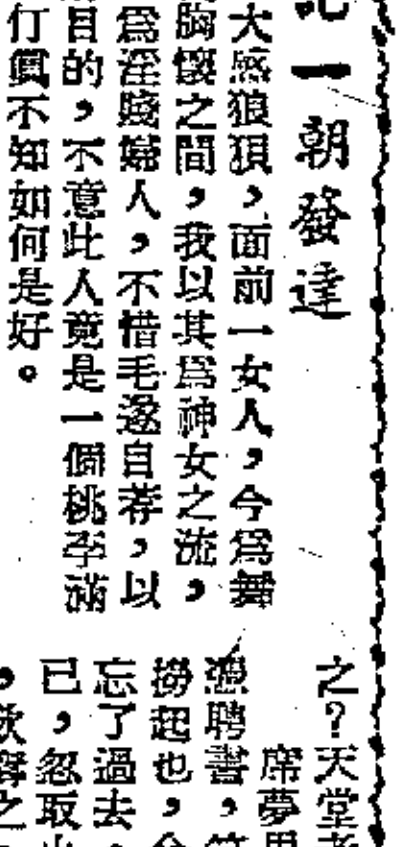 一朝發達
大感狼狽,面前一女人,今為舞
胸懷之間,我以其為神女之流,
為淫賤婦人,不惜毛遂自荐,以
目的,不意此人竟是一個桃李滿
行價不知如何是好。
之?天堂
席夢思
聘書,
撈起也,
忘了過去,
已,忽取出